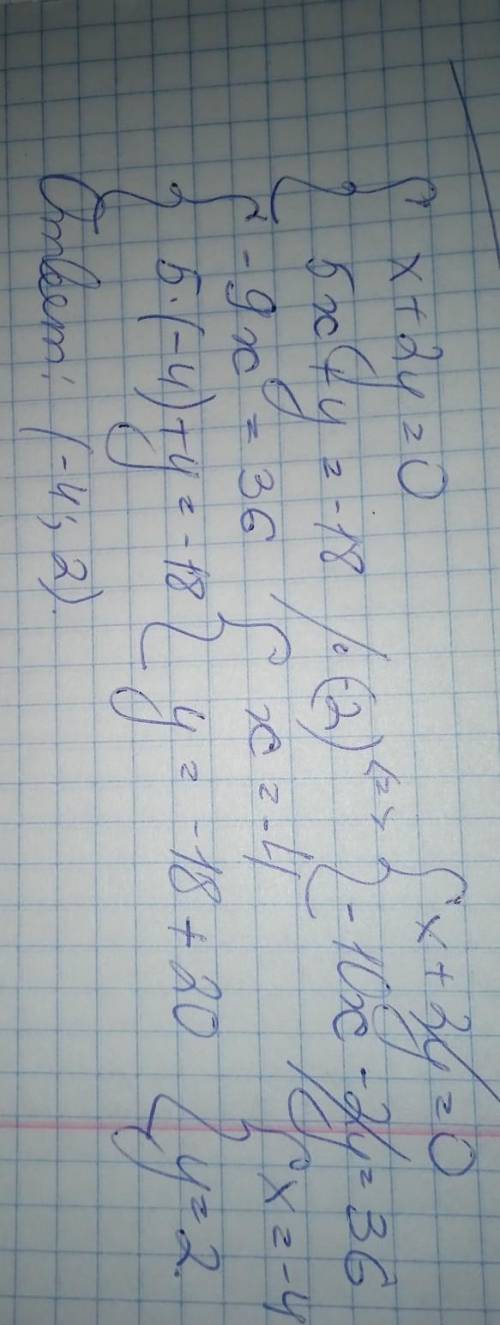 x + 2y = 0
5x + y = -18 /·(-2) <=> { x + 2y = 0
-10x - 2y = 36
{ -9x = 36 { x = -4 { x = -4
5·(-4) + y = -18 { y = -18 + 20 { y = 2.
Ответ: (-4; 2).